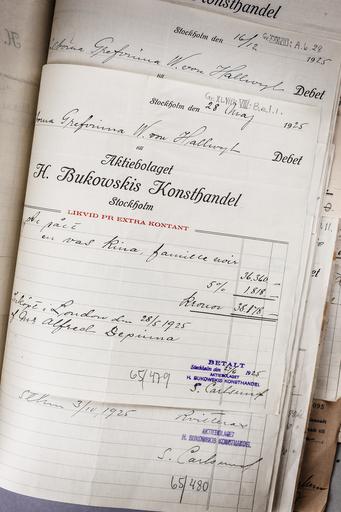 Konsthandel
Stockholm den 16/12 1925
Grefvinna W. von Hallwyl
till
Debet
Stockholm den 28 Maj 1925
Grefvinna W. von Hallwyl
till
Debet
Aktiebolaget
H. Bukowskis Konsthandel
Stockholm
LIKVID PR EXTRA KONTANT
en vas Kina famille noir
36,360 -
5% 1.818 -
Kronor 38.178 -
London den 28/5 1925
Alfred Depinna
BETALT
Stockholm den 1925
AKTIEBOLAGET
H. BUKOWSKIS KONSTHANDEL
S. Carlsund
65/479
3/11 1925
Kvitteras
AKTIEBOLAGET
H. BUKOWSKIS KONSTHANDEL
S. Carlsund
65/480